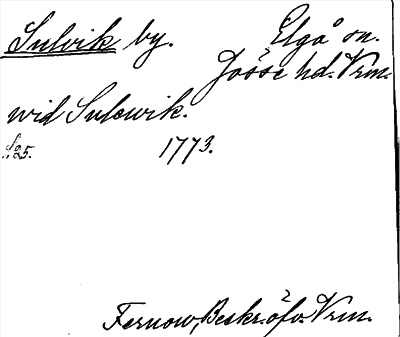 Sulvik by. Elgå sn.
Jösse hd. Vrm.
wid Sulewik.
s. 25. 1773.
Fernow, Beskr. öfv. Vrm.